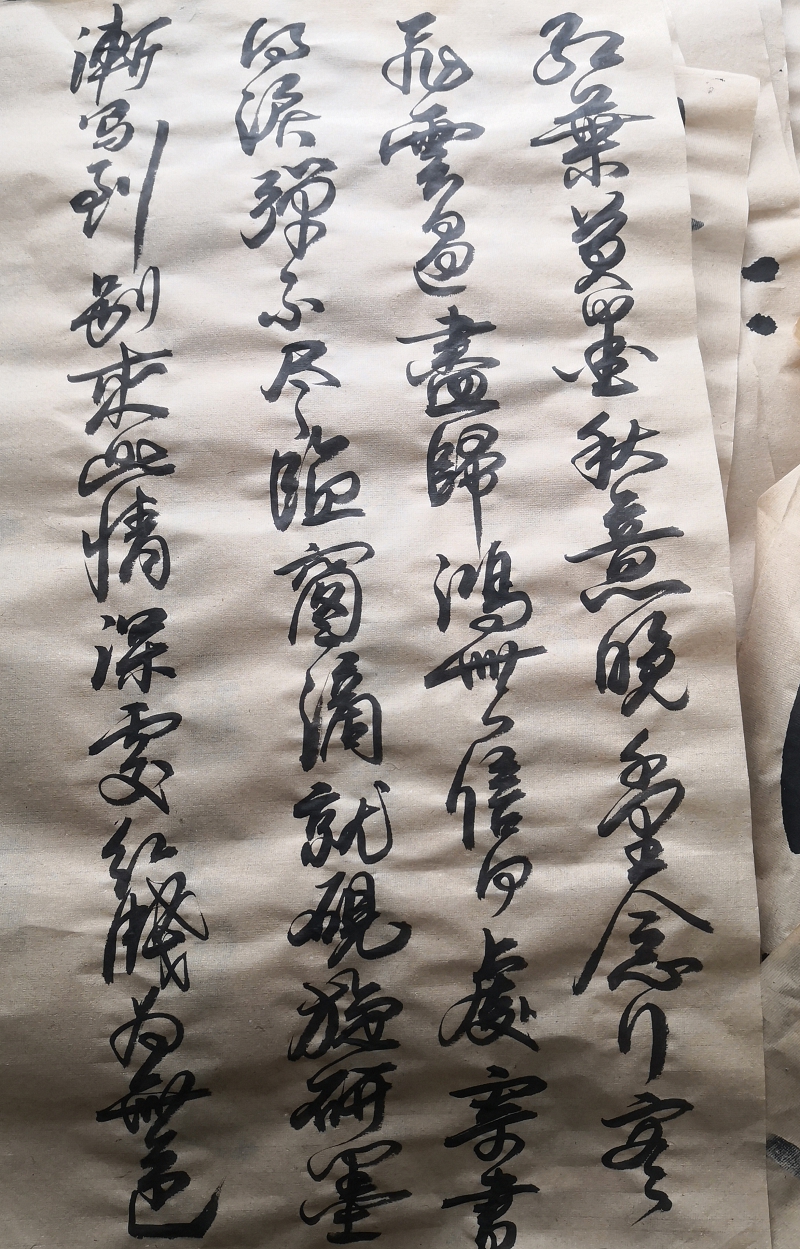 红葉黄秋意晚千里念行客
飛雲過盡歸鴻無信何處寄書
得淚彈不尽臨窗滴就硯旋研墨
漸写到别來此情深處红牋为無色